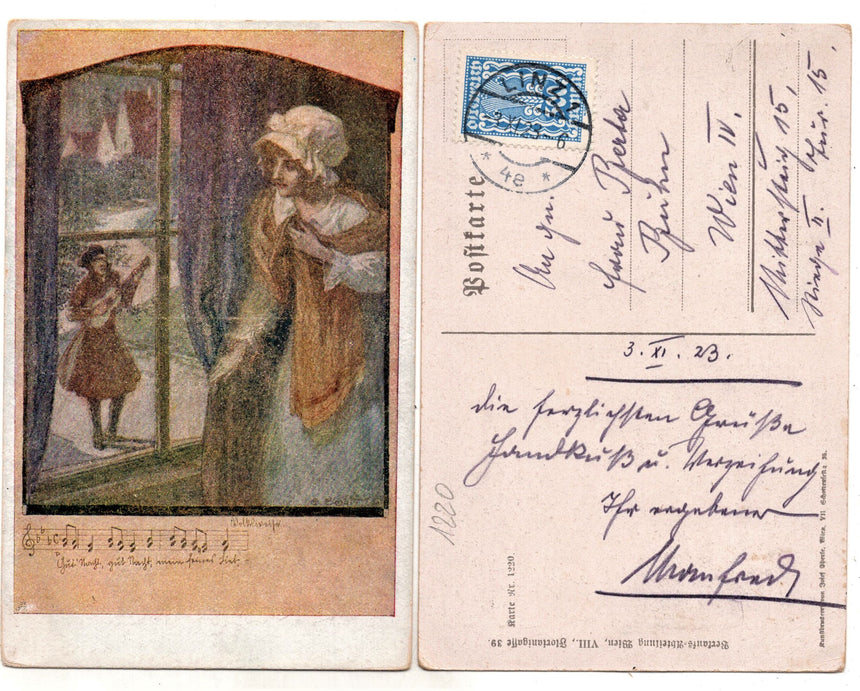 Volksweise
Gut' Nacht, gut' Nacht, mein feines Lieb
Postkarte
LINZ 1
* 4e *
An gn.
Frau Berta
Wien IV.
Mittersteig 15,
Stiege II. Tür. 15.
3. XI. 23.
die herzlichsten Grüße
Handkuß u. Verzeihung
Ihr ergebener
Manfred
1220
Karte Nr. 1220.
Verkaufs-Abteilung Wien, VIII., Florianigasse 39.
Kunstdruckerei von Josef Eberle, Wien, VII